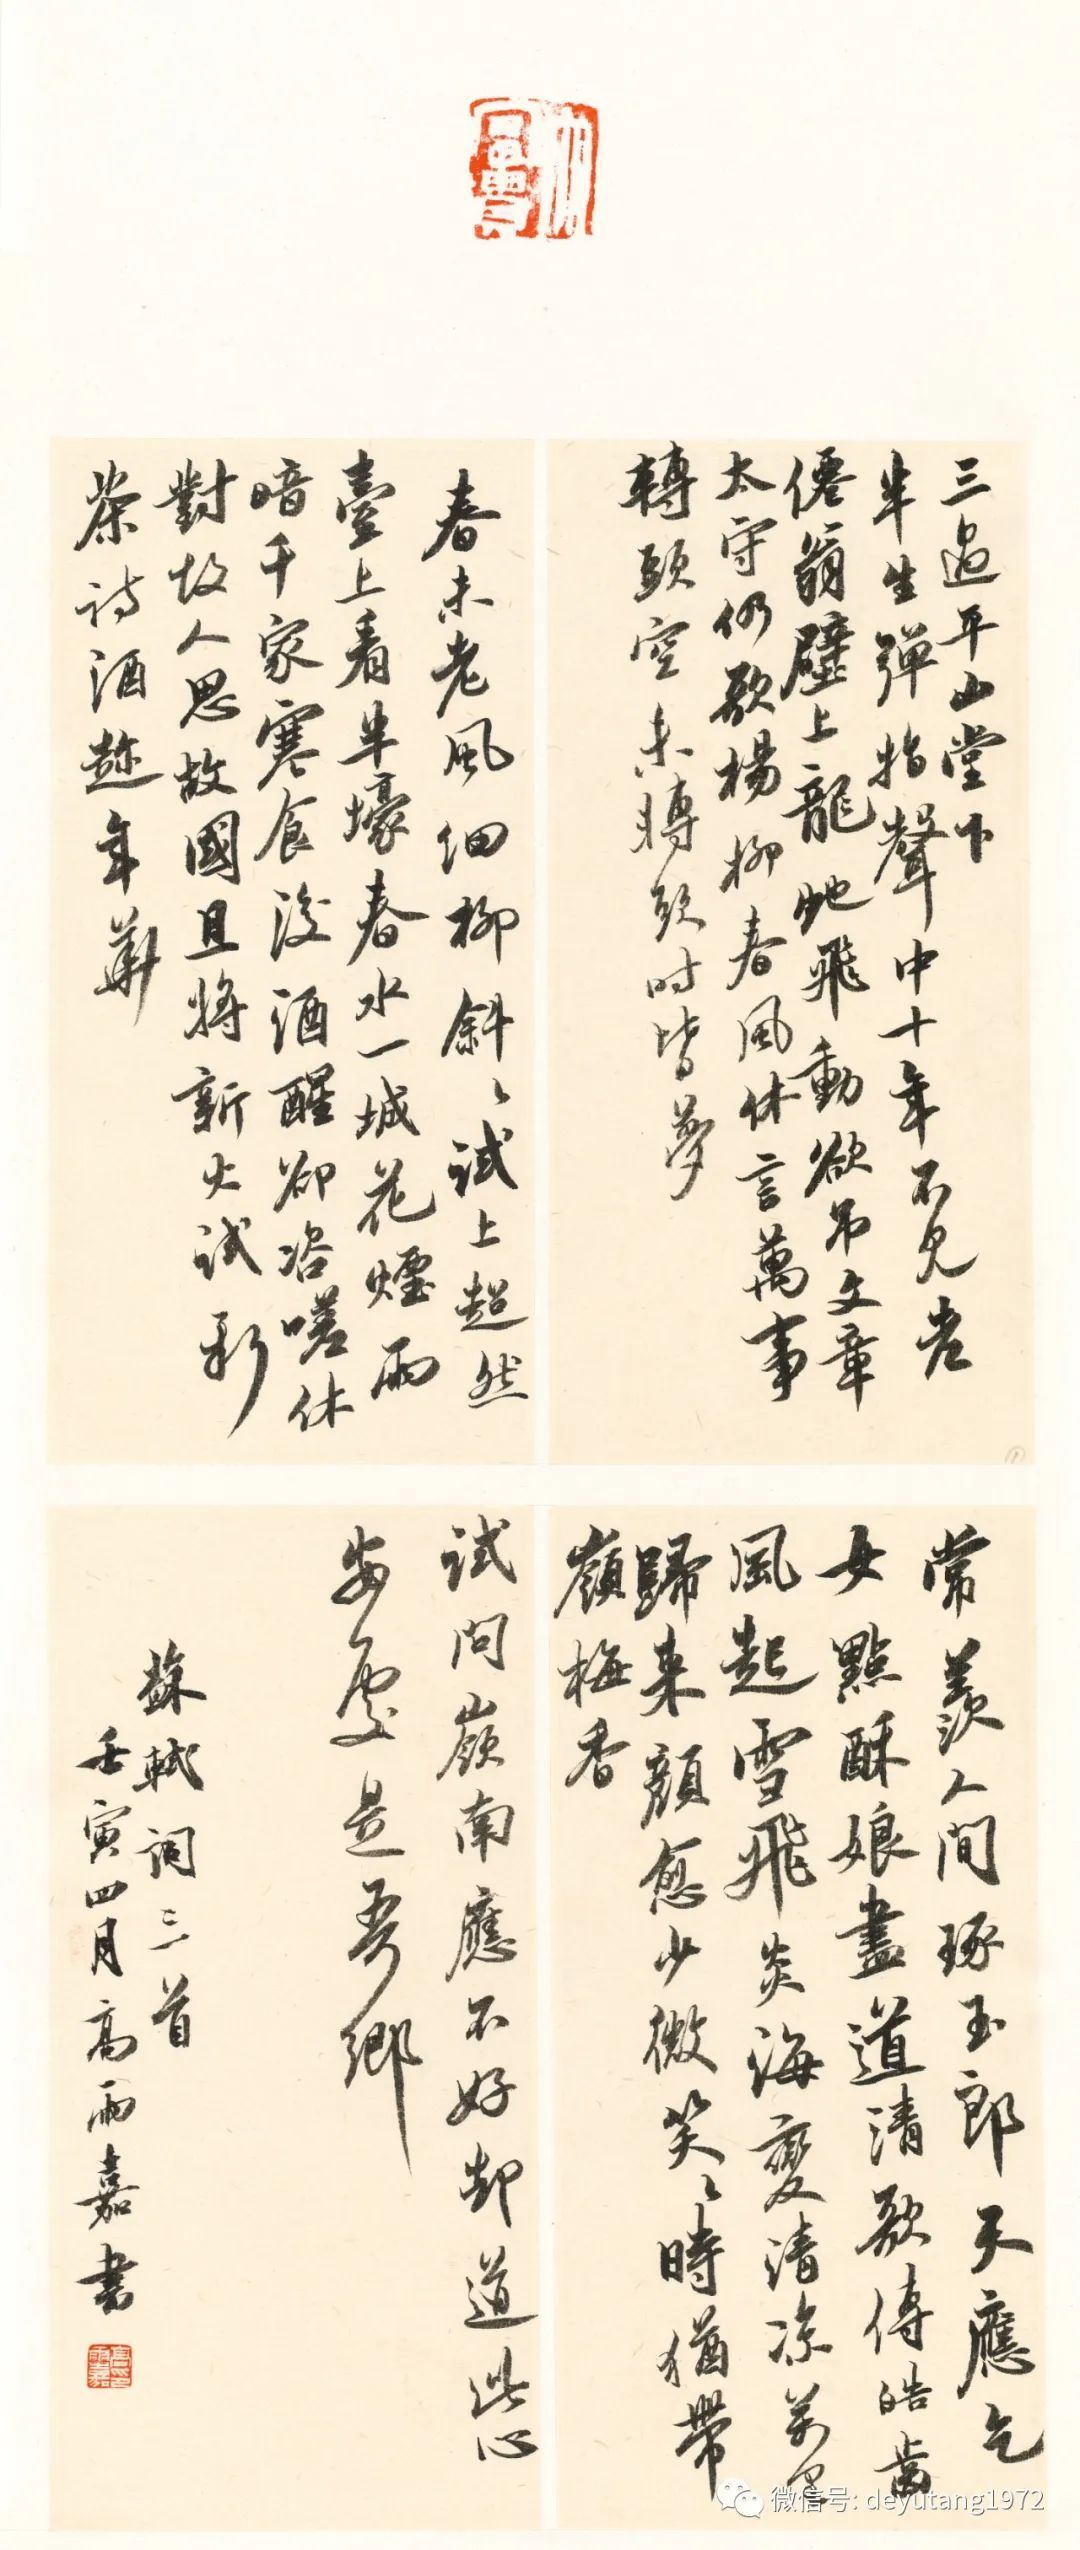 三過平山堂下
半生彈指聲中十年不見老
僊翁壁上龍蛇飛動欲吊文章
太守仍歌楊柳春風休言萬事
轉頭空未轉頭時皆夢
春未老風細柳斜〻試上超然
臺上看半壕春水一城花煙雨
暗千家寒食後酒醒卻咨嗟休
對故人思故國且將新火試新
茶詩酒趁年華
常羨人間琢玉郎天應乞
女點酥娘盡道清歌傳皓齒
風起雪飛炎海變清涼萬里
歸来顏愈少微笑〻時猶帶
嶺梅香
試問嶺南應不好却道此心
安處是吾鄉
蘇軾詞三首
壬寅四月高雨嘉書
微信号: deyutang1972